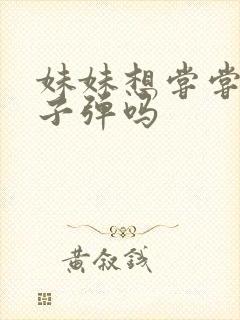 妹妹想尝尝
子弹吗
黄叙钱